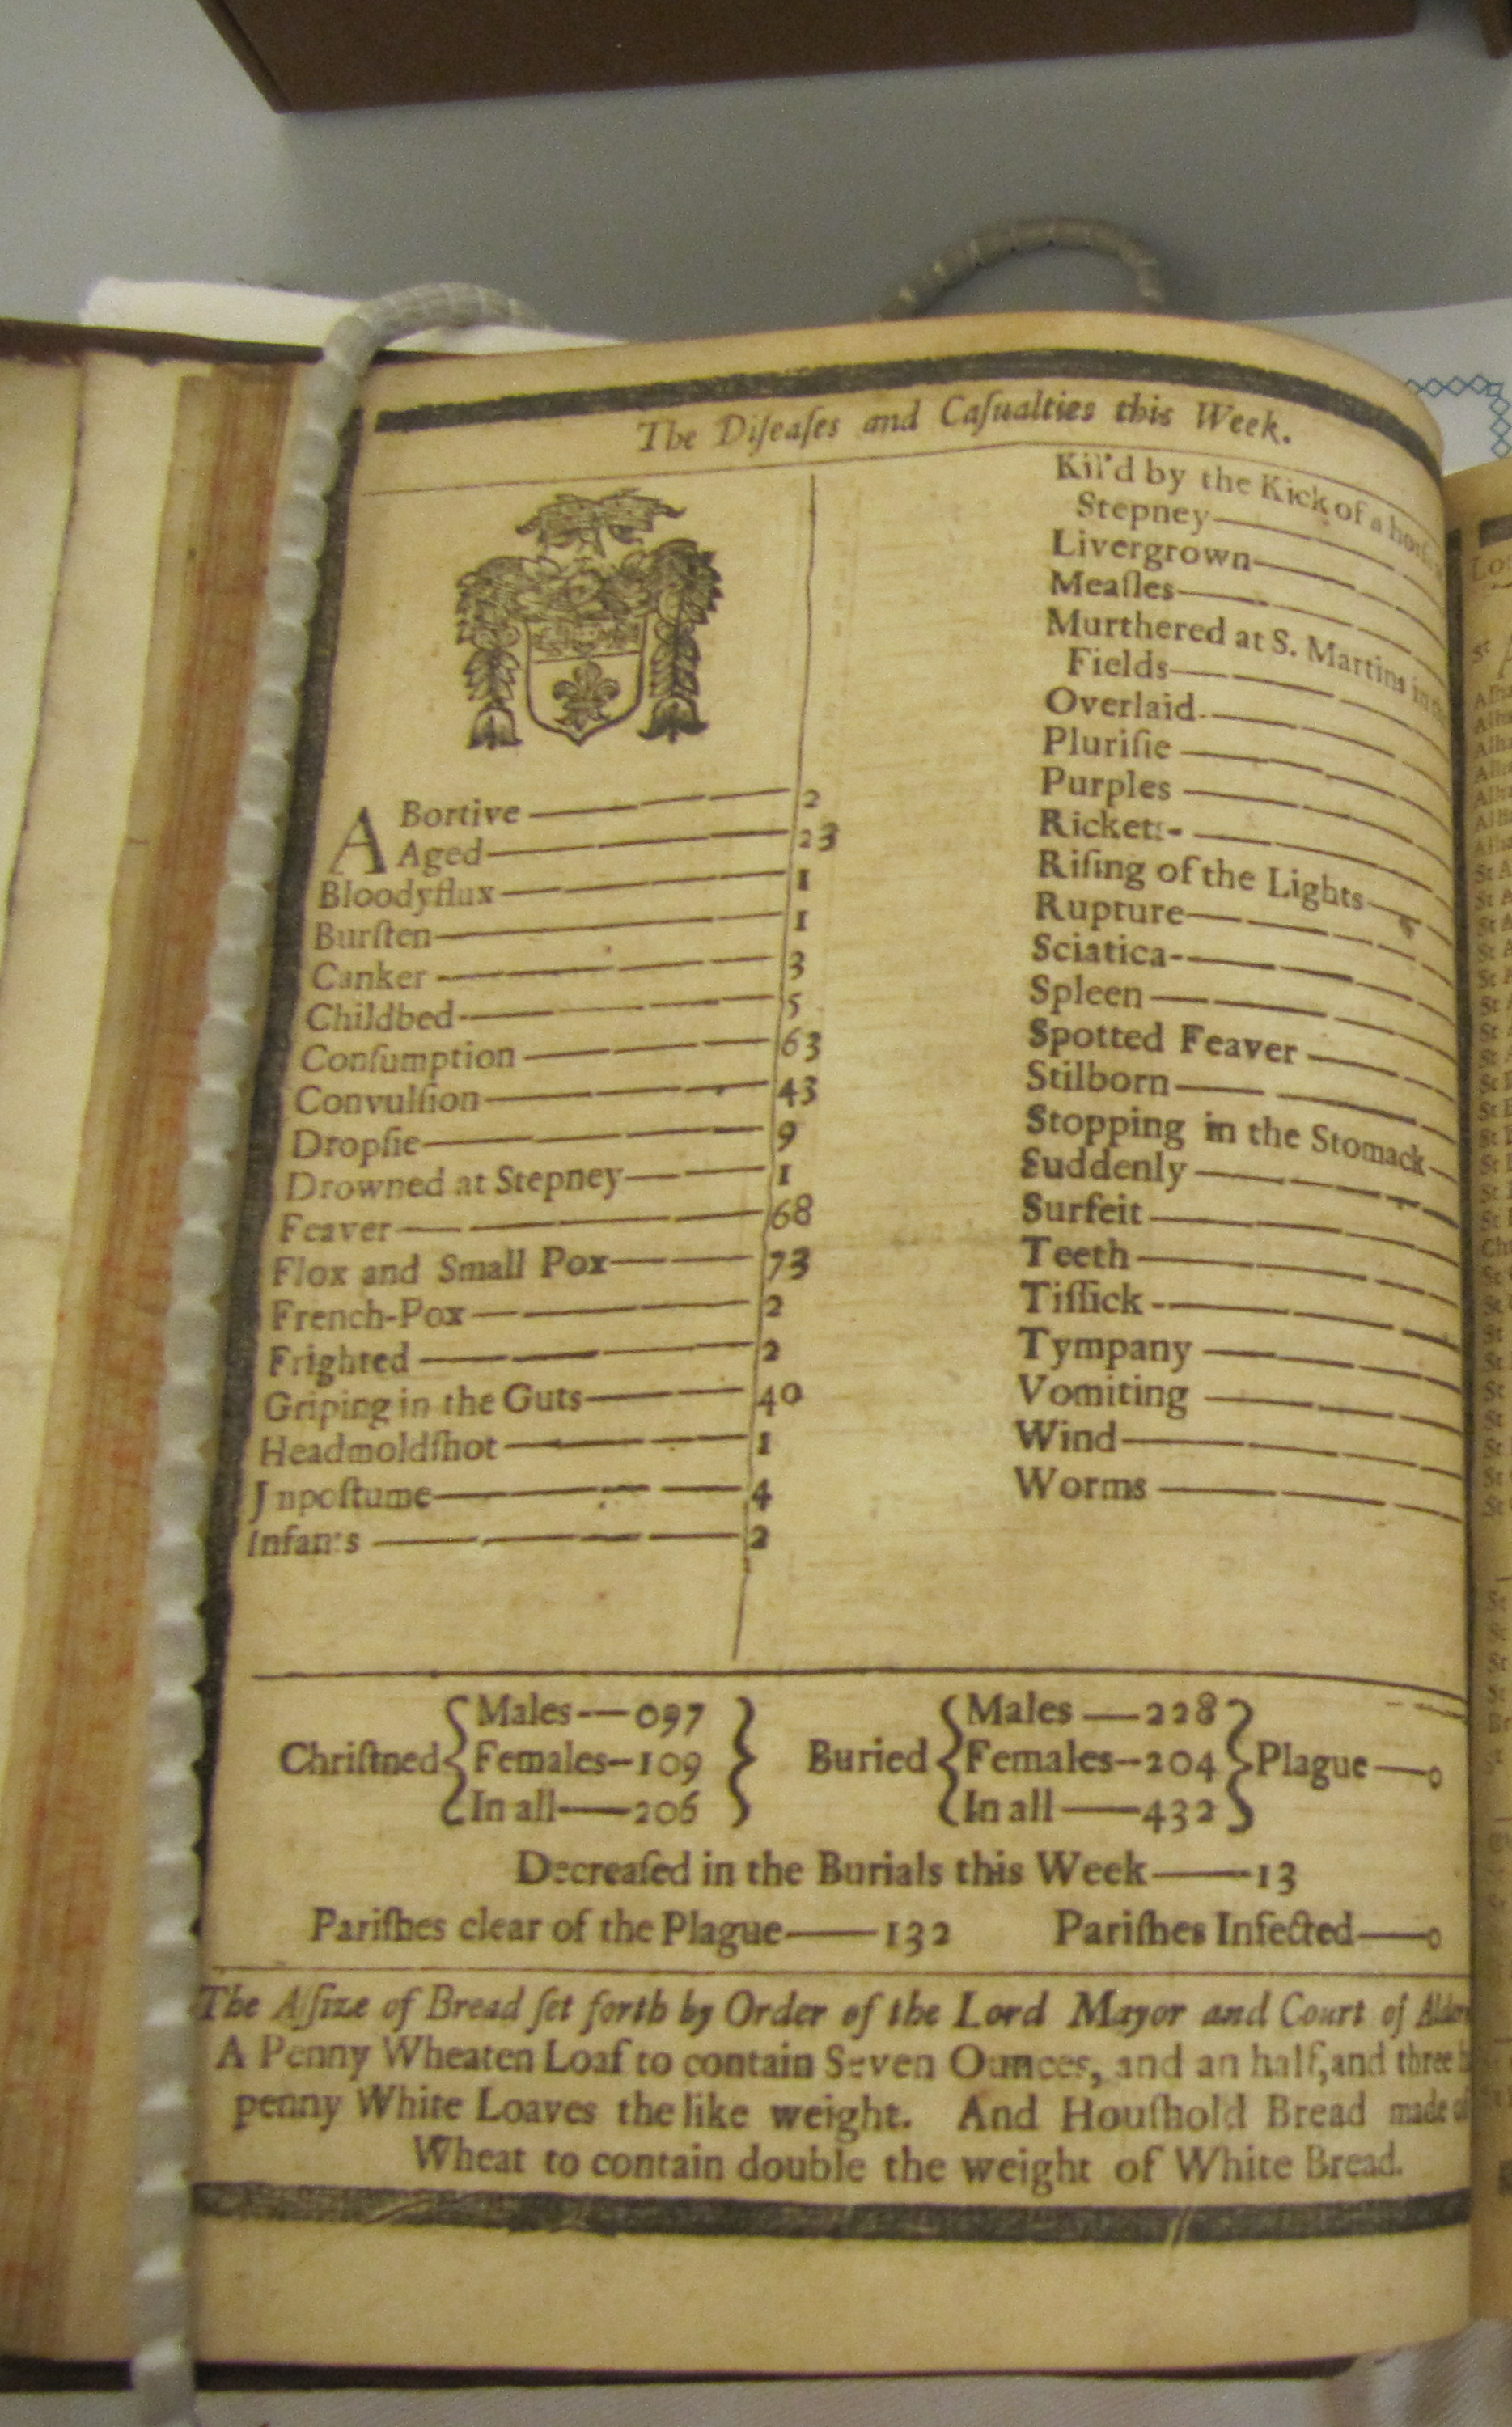 The Diſeaſes and Caſualties this Week.
ABortive — 2
Aged — 23
Bloodyflux — 1
Burſten — 1
Canker — 3
Childbed — 5
Conſumption — 63
Convulſion — 43
Dropſie — 9
Drowned at Stepney — 1
Feaver — 68
Flox and Small Pox — 73
French-Pox — 2
Frighted — 2
Griping in the Guts — 40
Headmoldſhot — 1
Jmpoſtume — 4
Infants — 2
Kil'd by the Kick of a
Stepney —
Livergrown —
Meaſles —
Murthered at S. Martins in
Fields —
Overlaid —
Pluriſie —
Purples —
Rickets —
Riſing of the Lights —
Rupture —
Sciatica —
Spleen —
Spotted Feaver —
Stilborn —
Stopping in the Stomack —
Suddenly —
Surfeit —
Teeth —
Tiſſick —
Tympany —
Vomiting —
Wind —
Worms —
Chriſtned { Males — 097 Females — 109 In all — 206 }
Buried { Males — 228 Females — 204 In all — 432 } Plague — 0
Decreaſed in the Burials this Week — 13
Pariſhes clear of the Plague — 132 Pariſhes Infected — 0
The Aſſize of Bread ſet forth by Order of the Lord Mayor and Court of
A Penny Wheaten Loaf to contain Seven Ounces, and an half, and three
penny White Loaves the like weight. And Houſhold Bread made
Wheat to contain double the weight of White Bread.